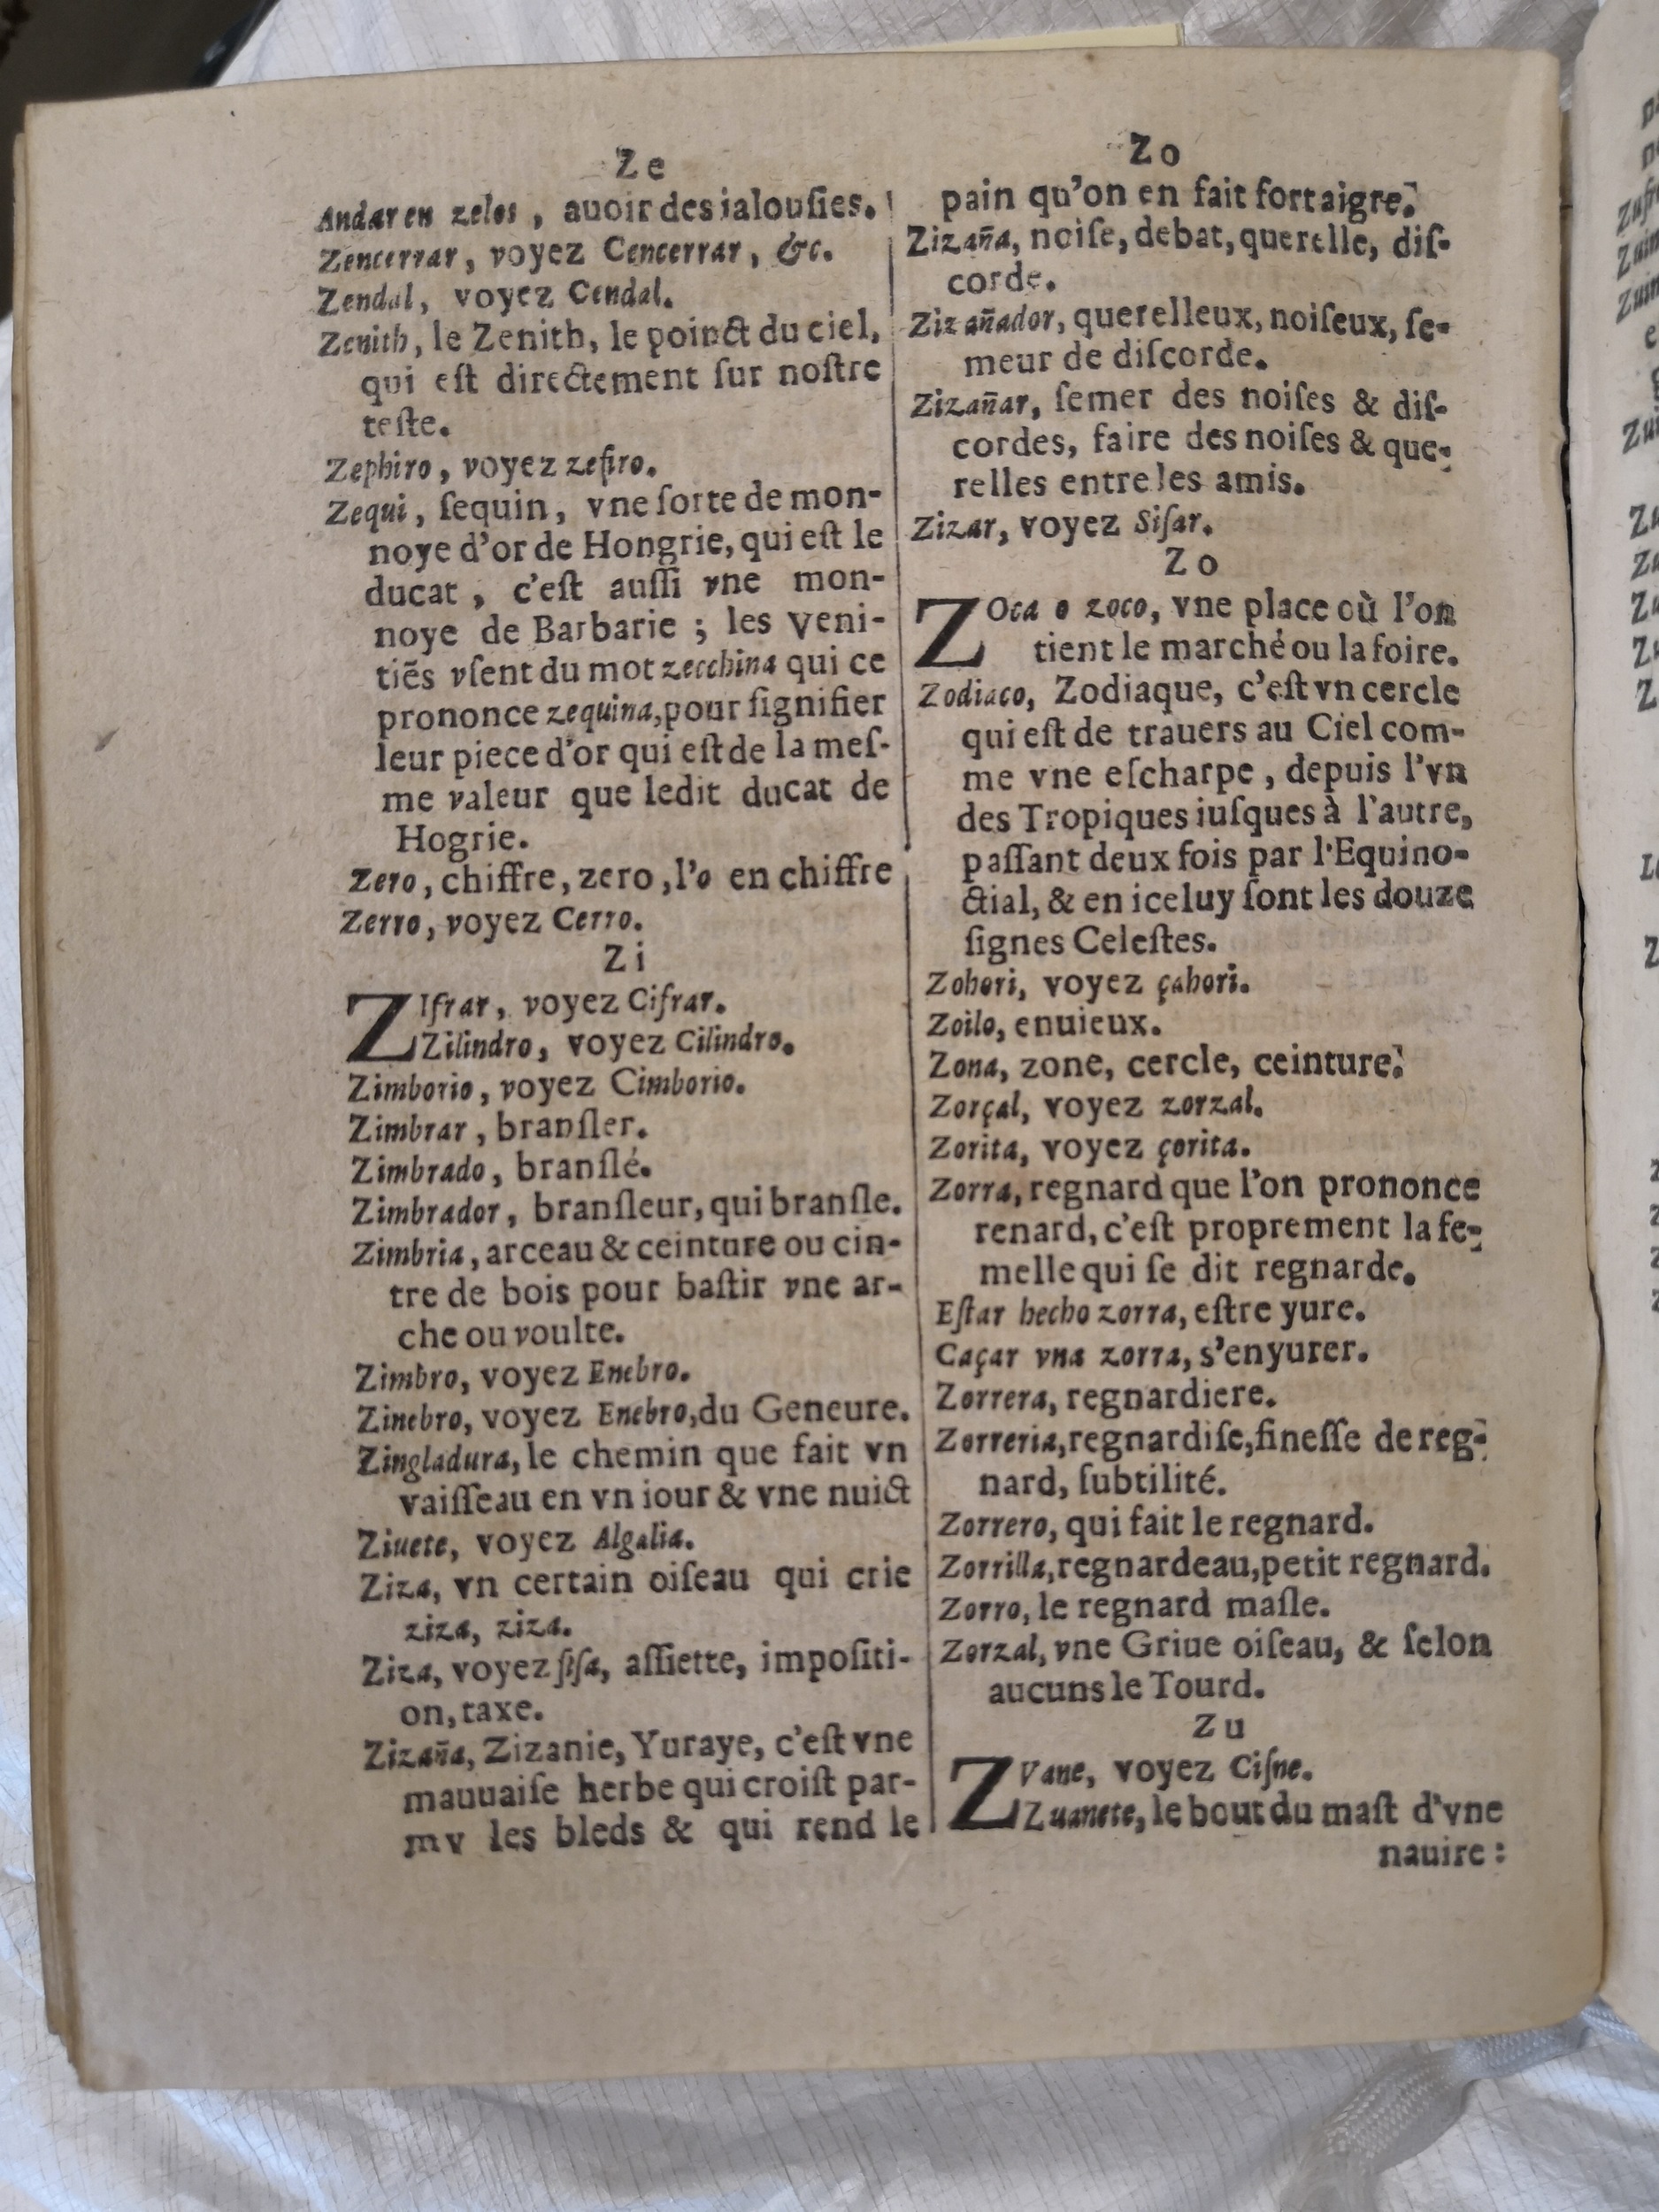 Ze
Andar en zelos , auoir des ialouſies.
Zencerrar , voyez Cencerrar , &c.
Zendal, voyez Cendal.
Zenith, le Zenith, le poinct du ciel,
qui eſt directement ſur noſtre
teſte.
Zephiro , voyez zefiro.
Zequi , ſequin , vne ſorte de mon-
noye d'or de Hongrie, qui eſt le
ducat , c'eſt auſſi vne mon-
noye de Barbarie ; les Veni-
tiẽs vſent du mot zecchina qui ce
prononce zequina,pour ſignifier
leur piece d'or qui eſt de la meſ-
me valeur que ledit ducat de
Hogrie.
Zero , chiffre, zero ,l'o en chiffre
Zerro, voyez Cerro.
Zi
ZIfrar, voyez Cifrar.
Zilindro, voyez Cilindro.
Zimborio , voyez Cimborio.
Zimbrar , branſler.
Zimbrado , branſlé.
Zimbrador , branſleur, qui branſle.
Zimbria , arceau & ceinture ou cin-
tre de bois pour baſtir vne ar-
che ou voulte.
Zimbro, voyez Enebro.
Zinebro, voyez Enebro,du Geneure.
Zingladura, le chemin que fait vn
vaiſſeau en vn iour & vne nuict
Ziuete, voyez Algalia.
Ziza, vn certain oiſeau qui crie
ziza, ziza.
Ziza, voyez ſiſa, aſſiette, impoſiti-
on, taxe.
Zizaña, Zizanie, Yuraye, c'eſt vne
mauuaiſe herbe qui croiſt par-
my les bleds & qui rend le
Zo
pain qu'on en fait fort aigre.
Zizaña, noiſe, debat, querelle, diſ-
corde.
Zizañador, querelleux, noiſeux, ſe-
meur de diſcorde.
Zizañar, ſemer des noiſes & diſ-
cordes, faire des noiſes & que-
relles entre les amis.
Zizar, voyez Siſar.
Zo
ZOca o zoco, vne place où l'on
tient le marché ou la foire.
Zodiaco, Zodiaque, c'eſt vn cercle
qui eſt de trauers au Ciel com-
me vne eſcharpe , depuis l'vn
des Tropiques iuſques à l'autre,
paſſant deux fois par l'Equino-
ctial, & en iceluy ſont les douze
ſignes Celeſtes.
Zohori, voyez çahori.
Zoilo, enuieux.
Zona, zone, cercle, ceinture.
Zorçal, voyez zorzal.
Zorita, voyez çorita.
Zorra, regnard que l'on prononce
renard, c'eſt proprement la fe-
melle qui ſe dit regnarde.
Eſtar hecho zorra, eſtre yure.
Caçar vna zorra, s'enyurer.
Zorrera, regnardiere.
Zorreria,regnardiſe,fineſſe de reg-
nard, ſubtilité.
Zorrero, qui fait le regnard.
Zorrilla,regnardeau,petit regnard.
Zorro, le regnard maſle.
Zorzal, vne Griue oiſeau, & ſelon
aucuns le Tourd.
Zu
ZVane, voyez Ciſne.
Zuanete, le bout du maſt d'vne
nauire :